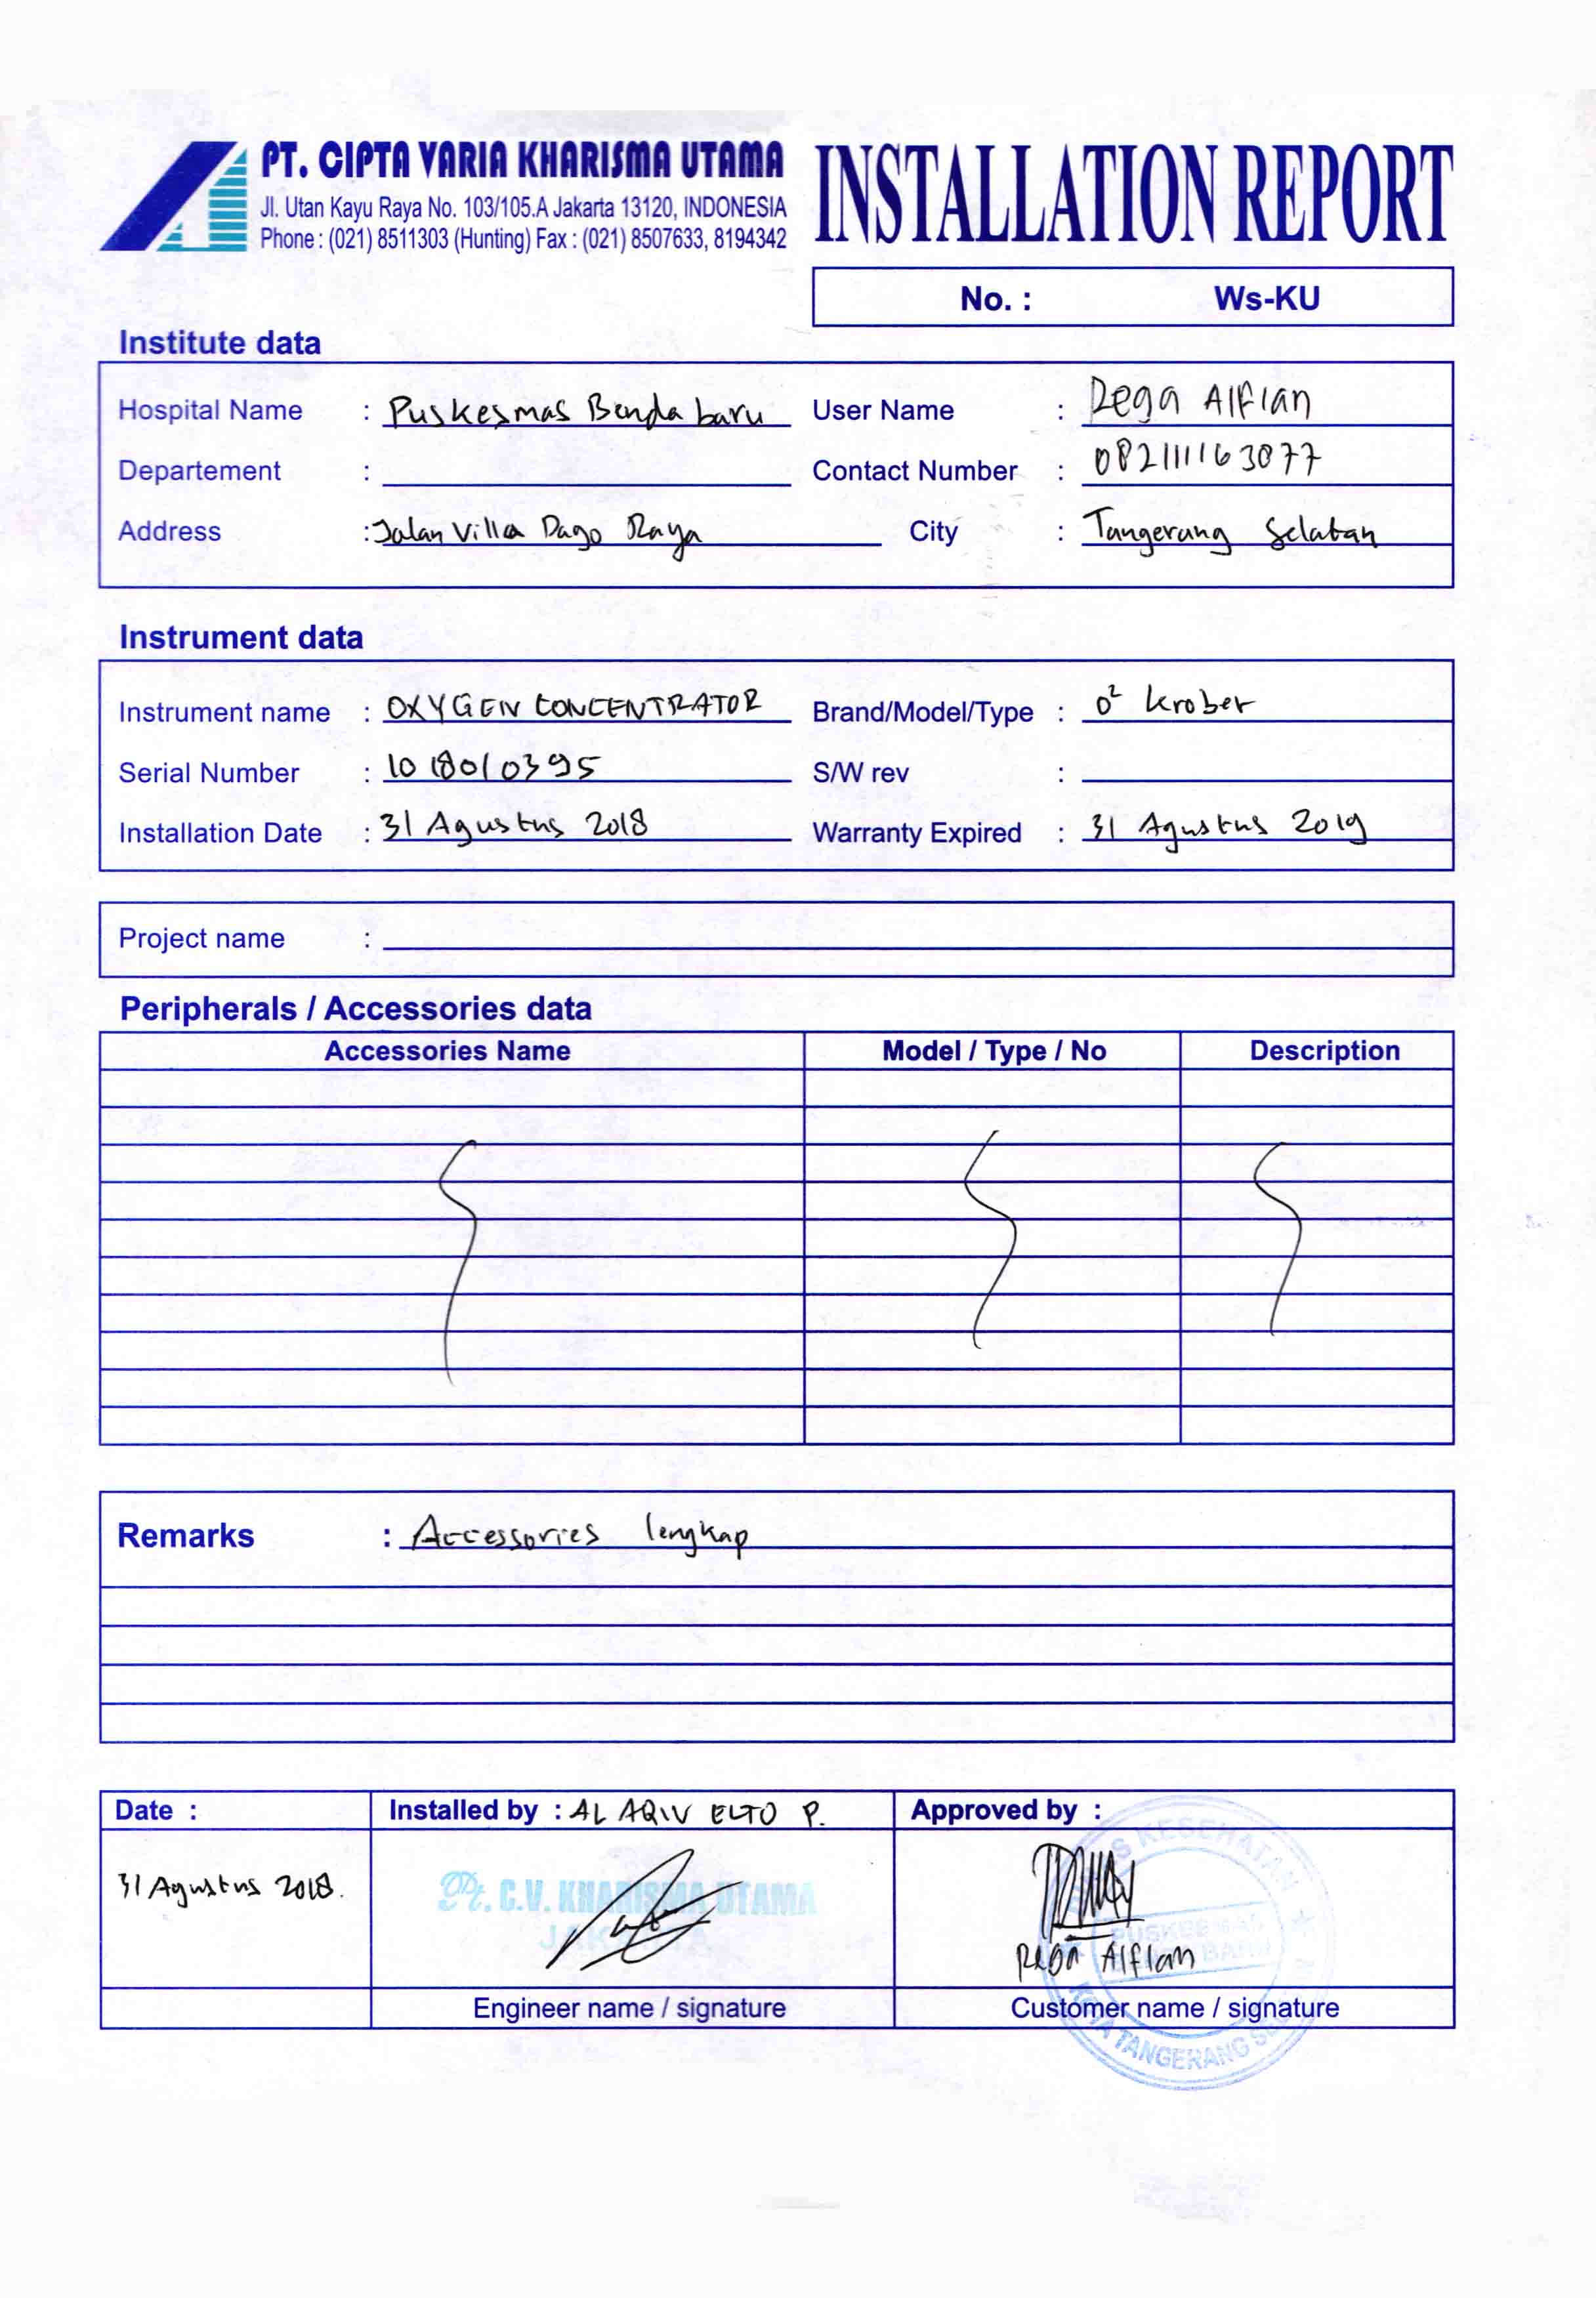 PT. CIPTA VARIA KHARISMA UTAMA
Jl. Utan Kayu Raya No. 103/105.A Jakarta 13120, INDONESIA
Phone : (021) 8511303 (Hunting) Fax : (021) 8507633, 8194342
INSTALLATION REPORT
No. : Ws-KU
Institute data
Hospital Name : Puskesmas Benda baru User Name : Rega Alfian
Departement : Contact Number : 082111163077
Address : Jalan Villa Dago Raya City : Tangerang Selatan
Instrument data
Instrument name : OXYGEN CONCENTRATOR Brand/Model/Type : O² krober
Serial Number : 1018010395 S/W rev :
Installation Date : 31 Agustus 2018 Warranty Expired : 31 Agustus 2019
Project name :
Peripherals / Accessories data
Accessories Name Model / Type / No Description
Remarks : Accessories lengkap
Date : Installed by : AL AQIV ELTO P. Approved by :
31 Agustus 2018.
Pt. C.V. KHARISMA UTAMA
JAKARTA
KESEHATAN
PUSKESMAS
BARU
KOTA TANGERANG
Rega Alfian
Engineer name / signature Customer name / signature